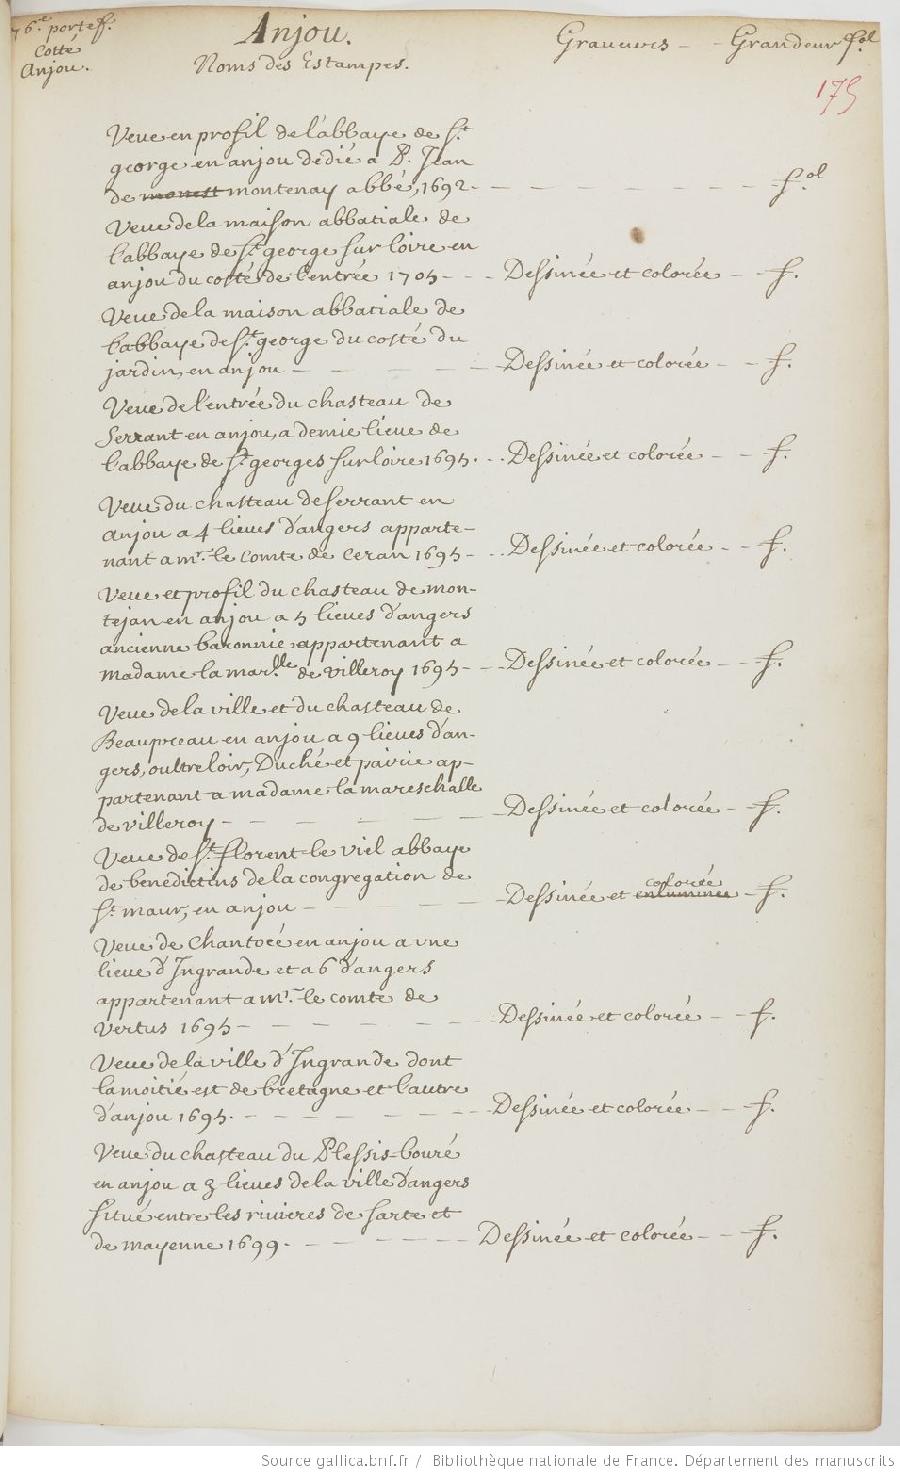 76.e portef. Anjou. Graveurs - - Grandeur fol
Cotté Noms des Estampes.
Anjou.
175
Veue en profil de l'abbaye de St.
george en anjou dedié a D. Jean
de monest montenay abbé, 1692. - - - - - - - f.ol
Veue de la maison abbatiale de
l'abbaye de St. george sur loire en
anjou du costé de l'entrée 1705 - - - Dessinée et colorée - - f.
Veue de la maison abbatiale de
l'abbaye de St. george du costé du
jardin, en anjou - - - - - - Dessinée et colorée - - f.
Veue de l'entrée du chasteau de
Serrant en anjou, a demie lieue de
l'abbaye de St. georges sur loire 1695. - - Dessinée et colorée - - f.
Veue du chasteau de serrant en
anjou a 4 lieues d'angers apparte-
nant a mr. le comte de Ceran 1695 - - - Dessinée et colorée - - f.
Veue et profil du chasteau de mon-
tejan en anjou a 5 lieues d'angers
ancienne baronnie appartenant a
Madame la mar.lle de villeroy 1695 - - - Dessinée et colorée - - f.
Veue de la ville et du chasteau de
Beaupreau en anjou a 9 lieues d'an-
gers, oultre loir, Duché et pairie ap-
partenant a madame la mareschalle
de villeroy - - - - - - - Dessinée et colorée - - f.
Veue de St. florent le viel abbaye
de benedictins de la congregation de colorée
St. maur, en anjou - - - - - Dessinée et enluminée - - f.
Veue de Chantocé en anjou a vne
lieue d'Ingrande et a 6 d'angers
appartenant a mr. le comte de
Vertus 1695 - - - - - - Dessinée et colorée - - f.
Veue de la ville d'Ingrande dont
la moitié est de bretagne et l'autre
d'anjou 1695. - - - - - - Dessinée et colorée - - f.
Veue du chasteau du Plessis-bouré
en anjou a 3 lieues de la ville d'angers
situé entre les rivieres de sarte et
de mayenne 1699. - - - - - Dessinée et colorée - - f.
Source gallica.bnf.fr / Bibliothèque nationale de France. Département des manuscrits